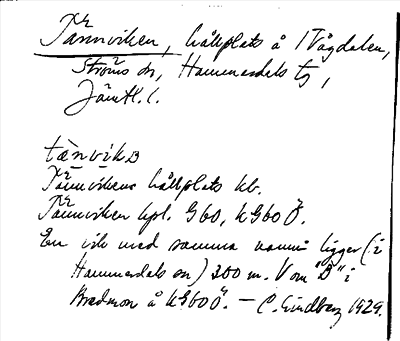 Tännviken, hållplats å Vågdalen,
Ströms sn, Hammerdals tg,
Jämtl. l.
tæ̀nvik
Tännvikens hållplats kb.
Tännviken hpl. G60, kG60Ö.
En vik med samma namn ligger (i
Hammerdals sn) 200 m. V om "B" i
å kG60Ö. — C. Lindberg 1929.